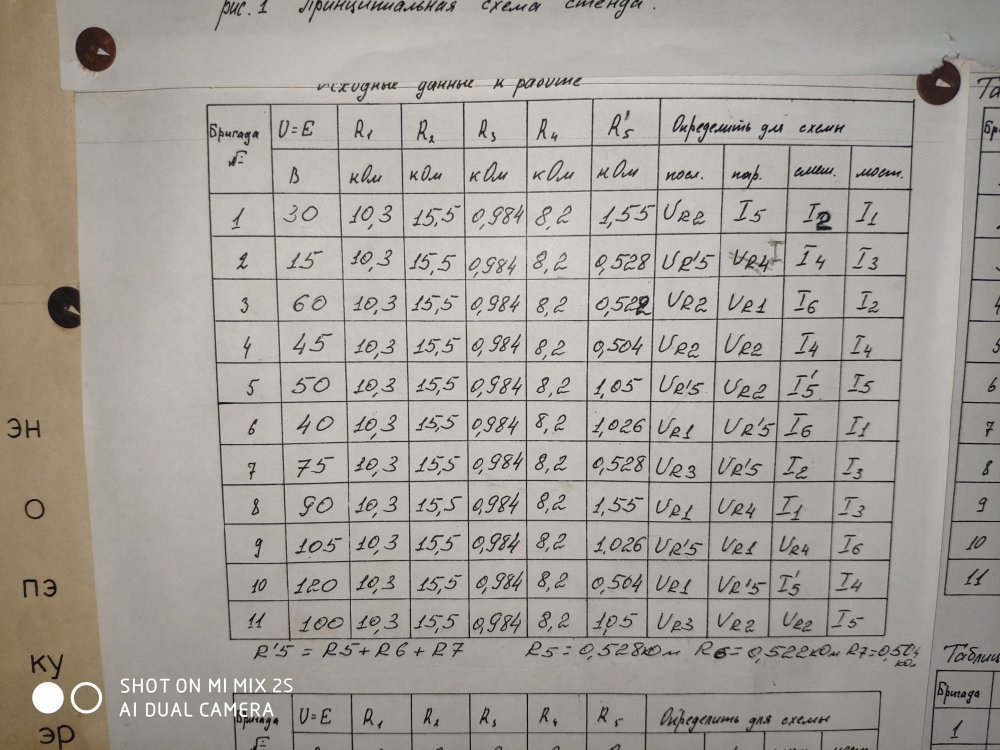 рис. 1 Принципиальная схема стенда.
Исходные данные к работе
Бригада № U=E R1 R2 R3 R4 R'5 Определить для схемы
В кОм кОм кОм кОм кОм посл. пар. смеш. мост.
1 30 10,3 15,5 0,984 8,2 1,55 UR2 I5 I2 I1
2 15 10,3 15,5 0,984 8,2 0,528 UR'5 I4 I3
3 60 10,3 15,5 0,984 8,2 0,522 UR2 UR1 I6 I2
4 45 10,3 15,5 0,984 8,2 0,504 UR2 UR2 I4 I4
5 50 10,3 15,5 0,984 8,2 1,05 UR'5 UR2 I'5 I5
6 40 10,3 15,5 0,984 8,2 1,026 UR1 UR'5 I6 I1
7 75 10,3 15,5 0,984 8,2 0,528 UR3 UR'5 I2 I3
8 90 10,3 15,5 0,984 8,2 1,55 UR1 UR4 I1 I3
9 105 10,3 15,5 0,984 8,2 1,026 UR'5 UR1 UR4 I6
10 120 10,3 15,5 0,984 8,2 0,504 UR1 UR'5 I'5 I4
11 100 10,3 15,5 0,984 8,2 105 UR3 UR2 UR2 I5
R'5 = R5+R6+R7 R5=0,528кОм R6=0,522кОм R7=0,504 кОм
Бригада № U=E R1 R2 R3 R4 R5 Определить для схемы
Та
4
5
6
7
8
9
10
11
Таблиц
Бригада
1
эн
о
пэ
ку
эр
SHOT ON MI MIX 2S
AI DUAL CAMERA